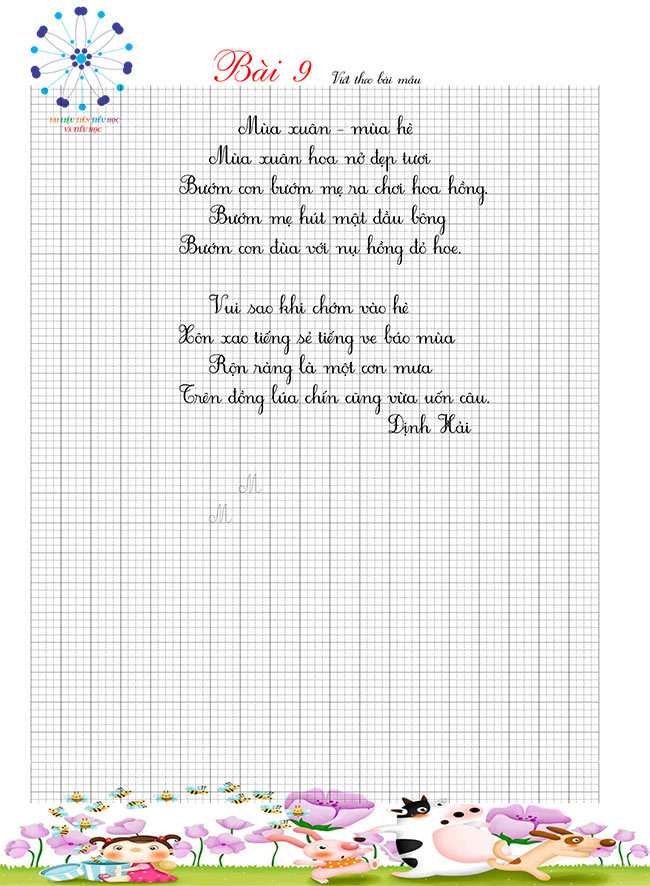 Bài 9 Viết theo bài mẫu
TÀI LIỆU TIỀN TIỂU HỌC
VÀ TIỂU HỌC
Mùa xuân - mùa hè
Mùa xuân hoa nở đẹp tươi
Bướm con bướm mẹ ra chơi hoa hồng.
Bướm mẹ hút mật đầu bông
Bướm con đùa với nụ hồng đỏ hoe.
Vui sao khi chớm vào hè
Xôn xao tiếng sẻ tiếng ve báo mùa
Rộn ràng là một cơn mưa
Trên đồng lúa chín cũng vừa uốn câu.
Định Hải
M
M